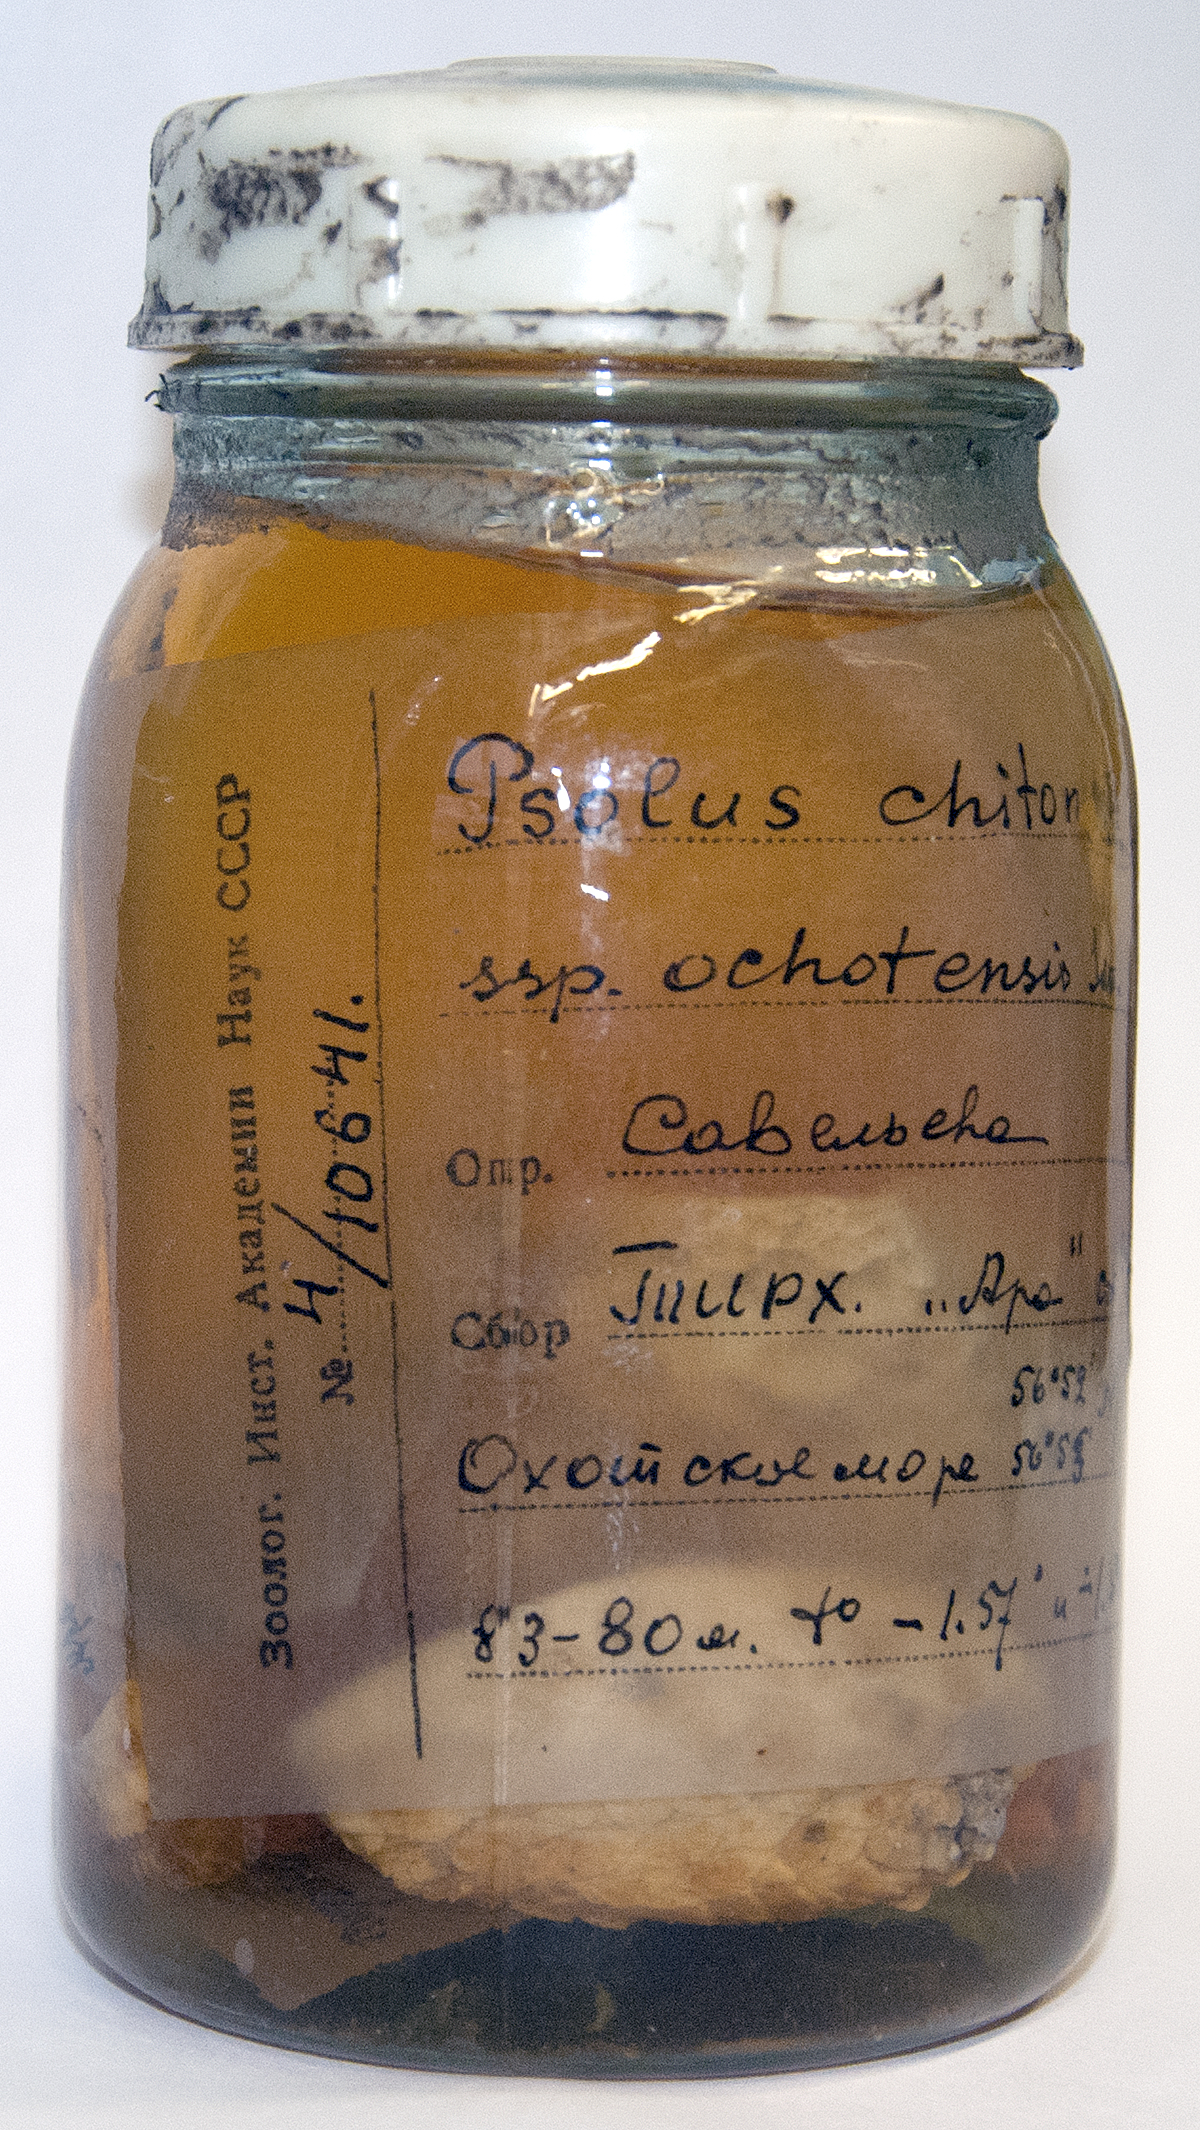 Зоолог. Инст. Академии Наук СССР
№ 4/10641.
Psolus chiton
ssp. ochotensis
Опр. Савельева
Сбор ТИРХ. „Ара"
56°52'
Охотское море 56°55'
83-80 м. t° -1.57° и -1.